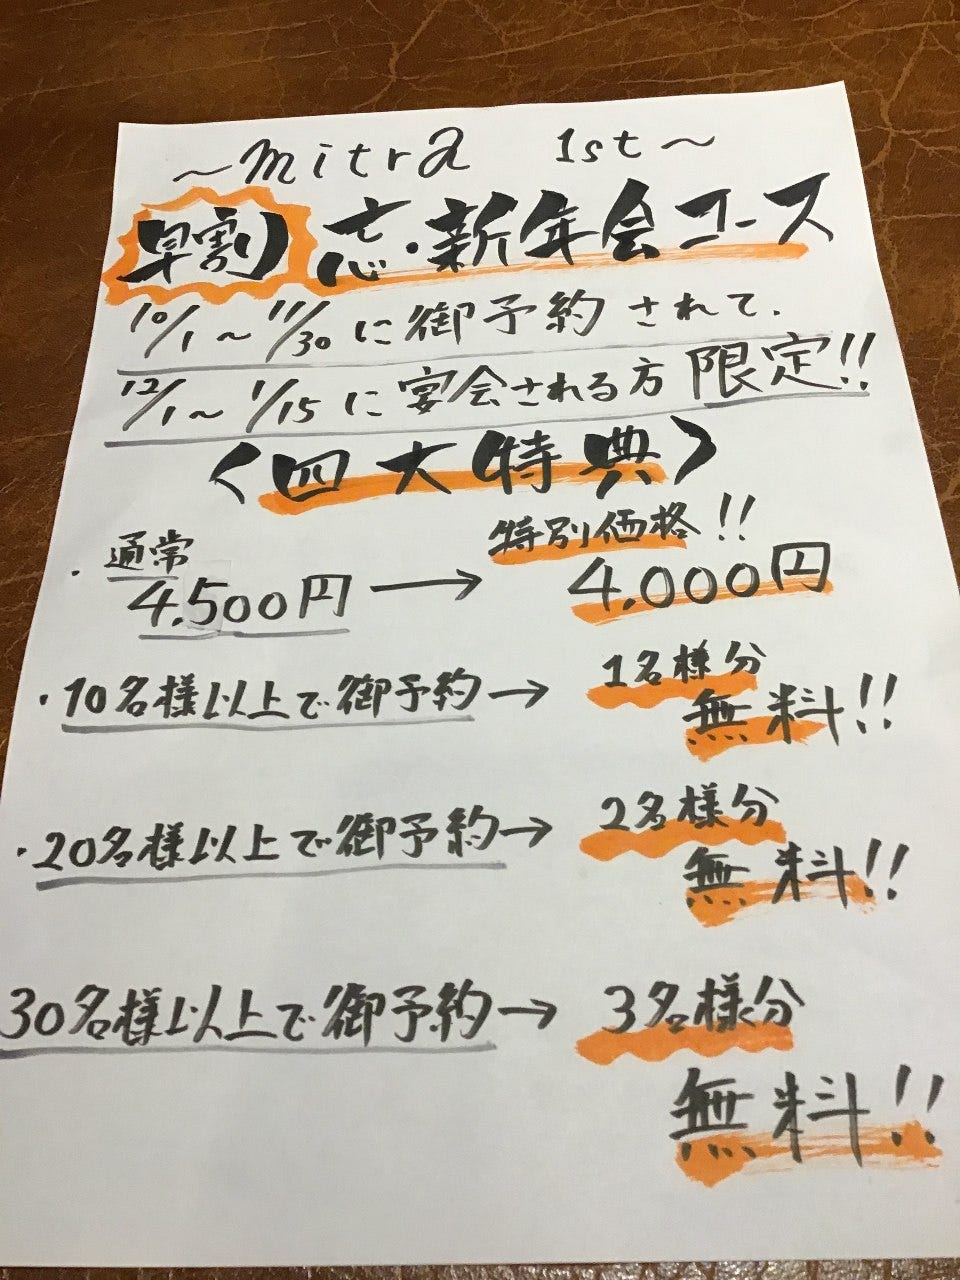 ～mitra 1st～
早割 忘・新年会コース
10/1～11/30に御予約されて、
12/1～1/15に宴会される方限定!!
〈四大特典〉
・通常 特別価格!!
4,500円→4,000円
・10名様以上で御予約→1名様分
無料!!
・20名様以上で御予約→2名様分
無料!!
30名様以上で御予約→3名様分
無料!!